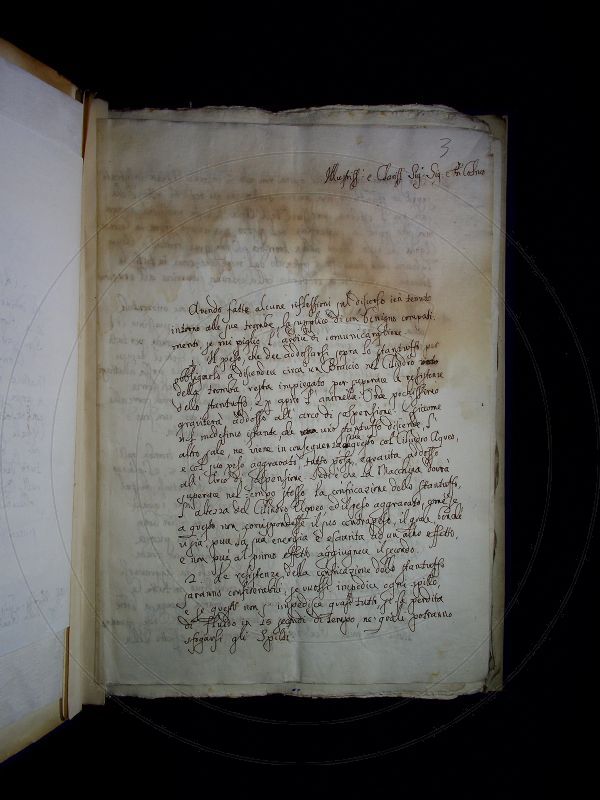 3
Illustriss: e Chariss: Sig: Sig: e
Avendo fatte alcune riflessioni sul discorso ieri tenuto
intorno alle sue trombe, la supplico di un benigno compati-
mento se mi piglio l'ardire di comunicargliene
1. Il peso, che dee addossarsi sopra lo stantuffo per
obbligarlo a discendere circa un Braccio nel Cilindro
della tromba resta impiegato per superare le resistenze
dello stantuffo, e aprir l'animella. Una pochissimo
graviterà addosso all'arco di sospensione. Siccome
nel medesimo istante, che uno stantuffo discende, l'
altro sale, ne viene in conseguenza, che questo col Cilindro Aqueo,
e col suo peso aggravato tutto posa, e gravita addosso
all'Arco di sospensione. Sicchè la Macchina dovrà
superare nel tempo stesso la confricazione dello stantuffo,
l'altezza del Cilindro Aqueo, ed il peso aggravato, come se
a questo non corrispondesse il suo contrapeso, il quale
già, più la sua energia è esaurita ad un altro effetto,
e non può al primo effetto aggiugnere il secondo.
2. Le resistenze della confricazione dello stantuffo
saranno considerabili, se vuolsi impedire ogni spillo,
e se questi non s'impedisca quasi tutti, se fa perdita
di fluido in 15 secondi di tempo, ne' quali potranno
sfogarsi gli Spilli.